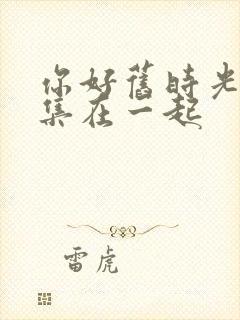 你好舊時光
集在一起
雷虎